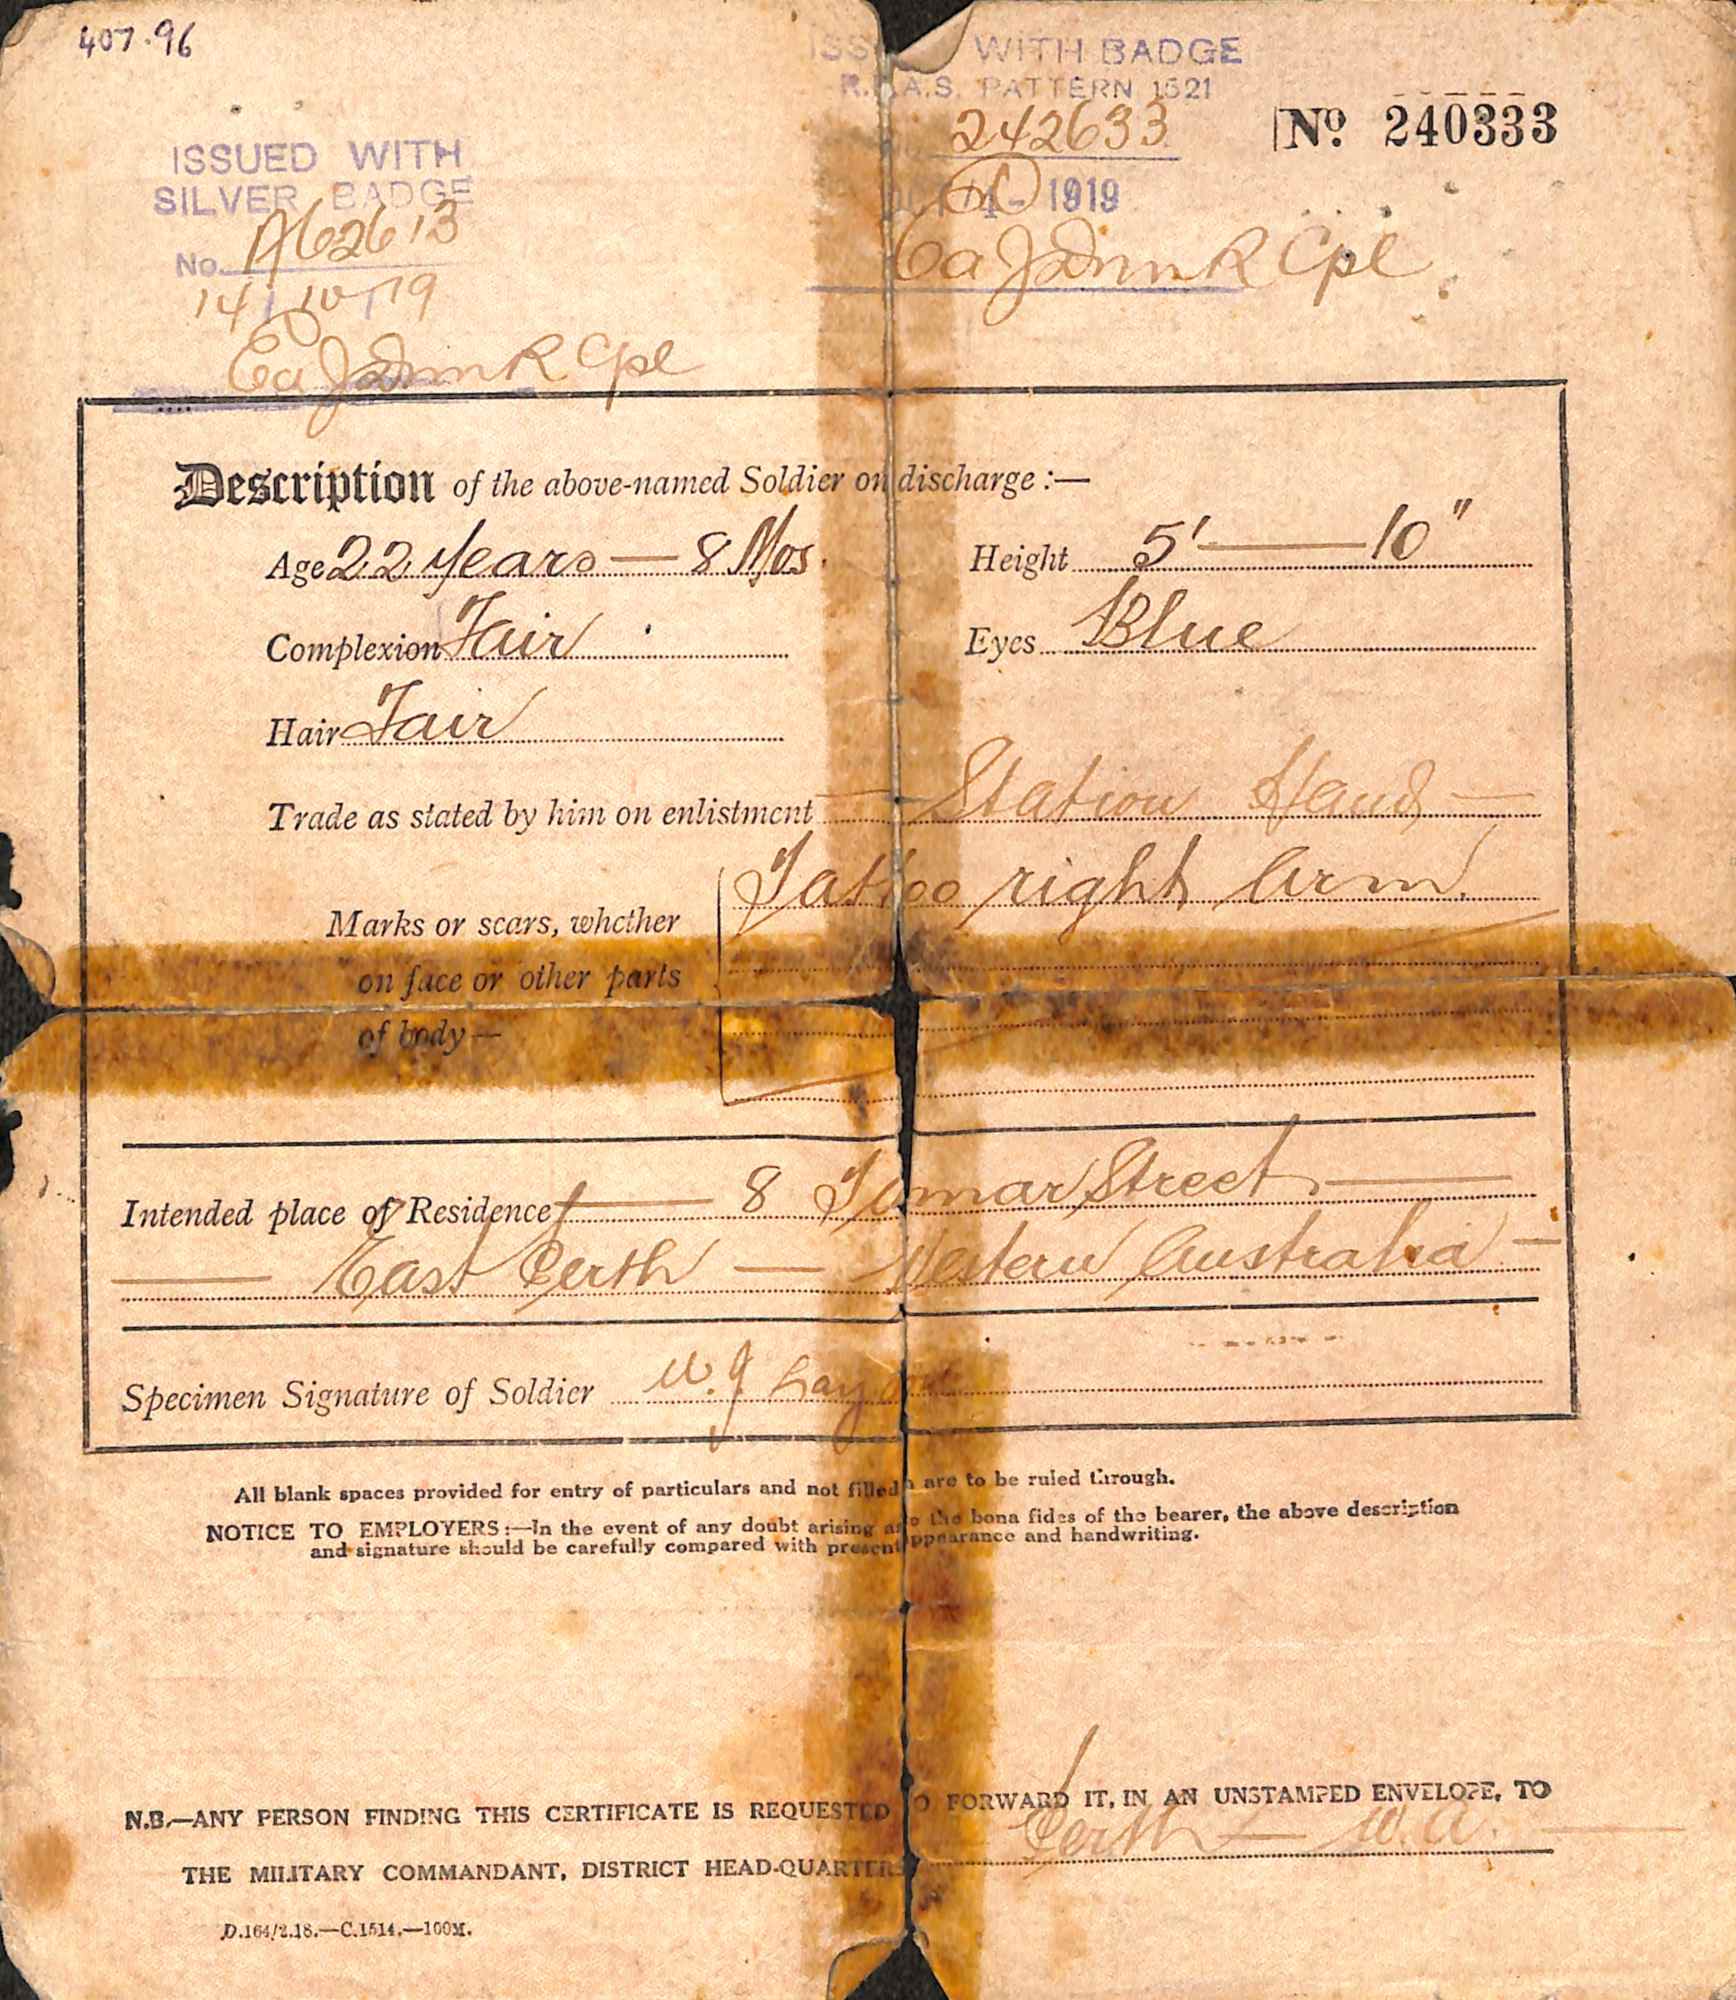 407.96
ISSUED WITH BADGE
R.A.S. PATTERN 1521
242633
No. 240333
1919
Cpl
ISSUED WITH
SILVER BADGE
No. A62613
14/10/19
Cpl
Description of the above-named Soldier on discharge :—
Age 22 Years — 8 Mos.
Height 5' — 10"
Complexion Fair
Eyes Blue
Hair Fair
Trade as stated by him on enlistment — Station Hand —
Marks or scars, whether
on face or other parts
of body —
Tattoo right Arm.
Intended place of Residence — 8 Street —
— East Perth — Western Australia —
Specimen Signature of Soldier W. J.
All blank spaces provided for entry of particulars and not filled are to be ruled through.
NOTICE TO EMPLOYERS :—In the event of any doubt arising as to the bona fides of the bearer, the above description
and signature should be carefully compared with present appearance and handwriting.
N.B.—ANY PERSON FINDING THIS CERTIFICATE IS REQUESTED TO FORWARD IT, IN AN UNSTAMPED ENVELOPE, TO
THE MILITARY COMMANDANT, DISTRICT HEAD-QUARTERS Perth — W.A.
D.164/2.18.—C.1514.—100M.